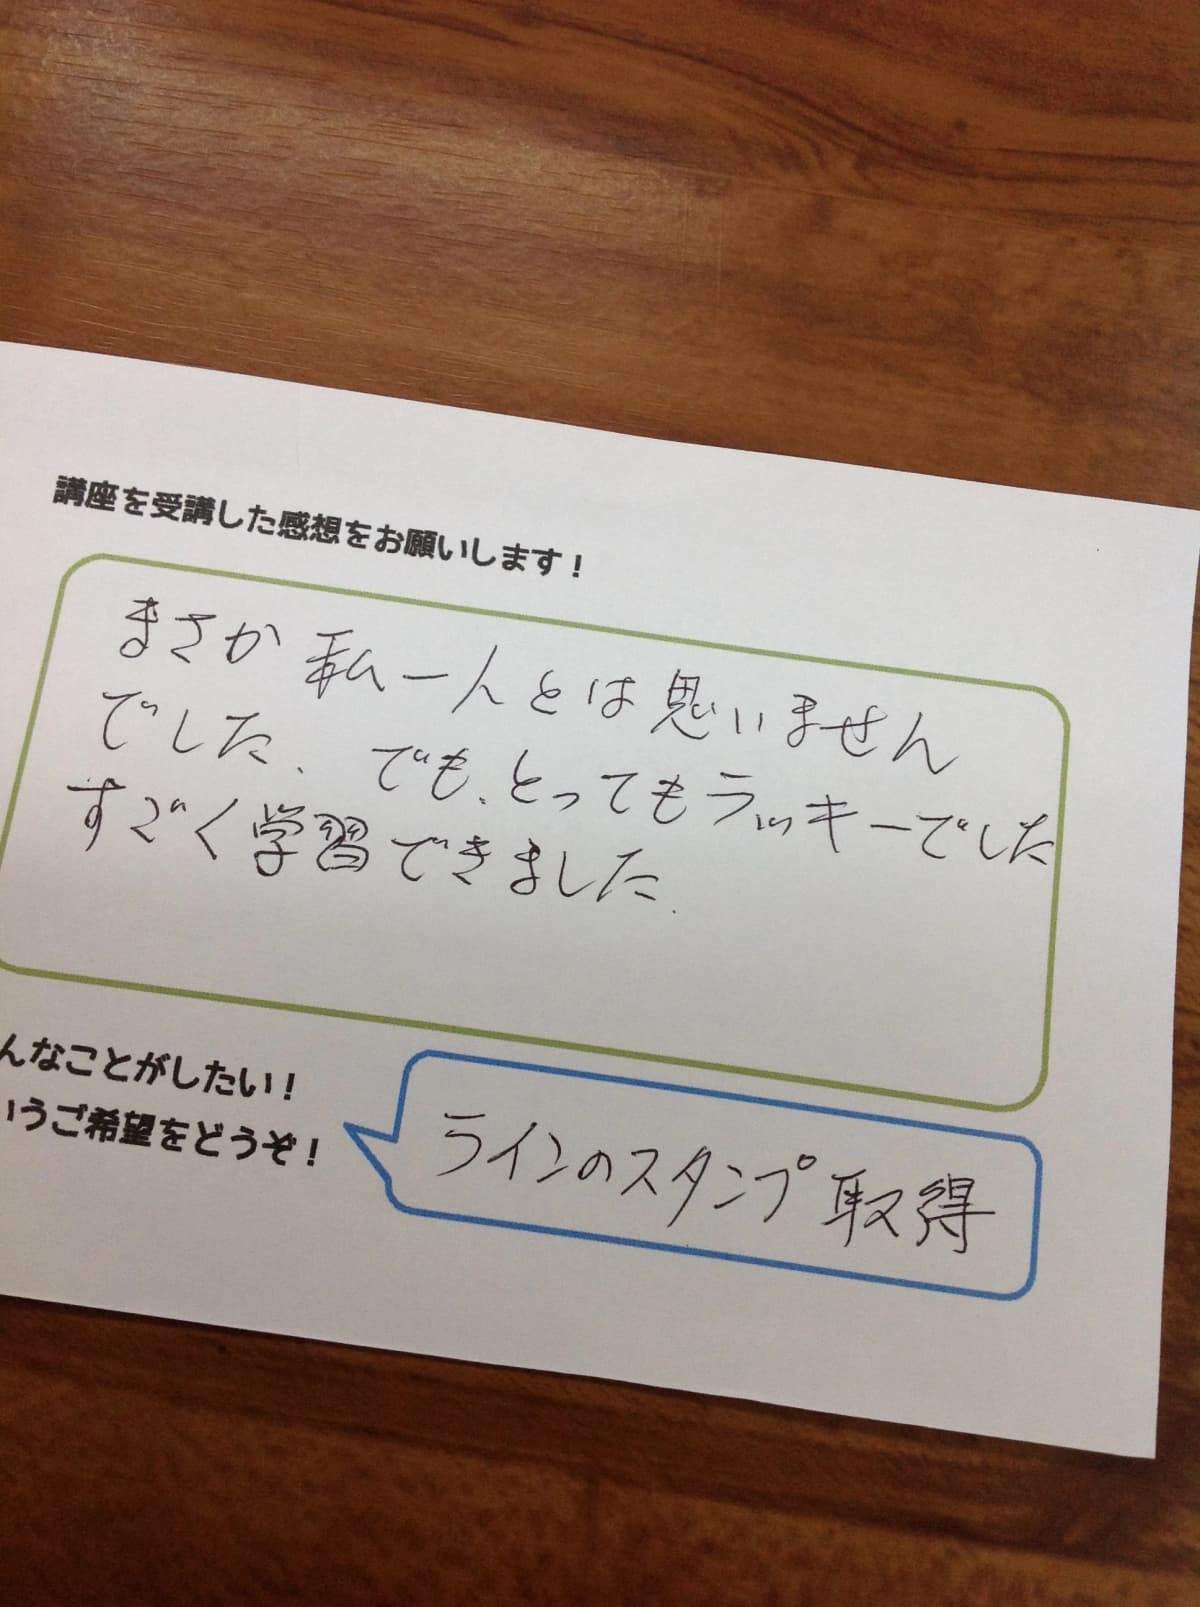 講座を受講した感想をお願いします！
まさか私一人とは思いません
でした、でも、とってもラッキーでした
すごく学習できました.
んなことがしたい！
いうご希望をどうぞ！
ラインのスタンプ取得